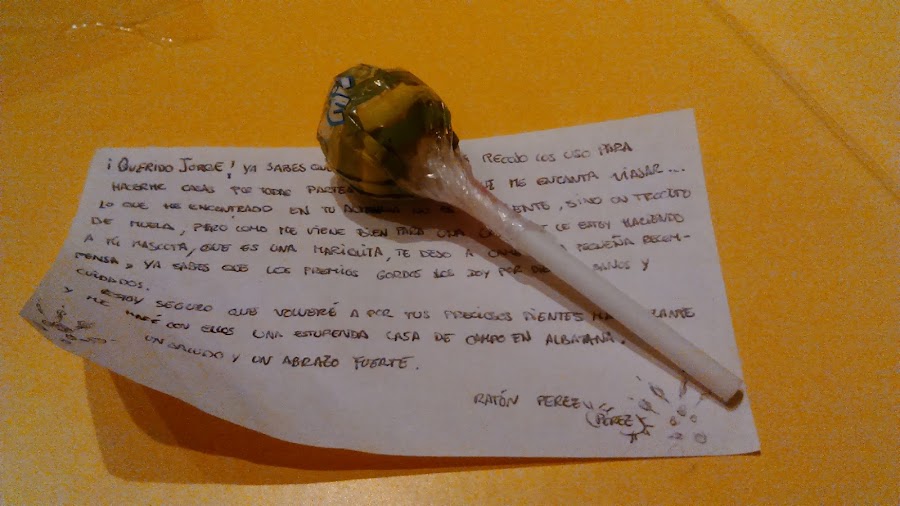 ¡QUERIDO JORGE! YA SABES QUE RECOJO LOS USO PARA
HACERME CASAS POR TODAS PARTES ME ENCANTA VIAJAR...
LO QUE HE ENCONTRADO EN TU NO ES DIENTE, SINO UN TROCITO
DE MUELA, PERO COMO ME VIENE BIEN PARA UNA QUE LE ESTOY HACIENDO
A MI MASCOTA, QUE ES UNA MARIQUITA, TE DEJO A PEQUEÑA RECOM-
PENSA, YA SABES QUE LOS PREMIOS GORDOS LOS DOY POR SANOS Y
CUIDADOS.
Y ESTOY SEGURO QUE VOLVERÉ A POR TUS PRECIOSOS DIENTES MÁS ADELANTE
ME HARÉ CON ELLOS UNA ESTUPENDA CASA DE CAMPO EN ALBATANA.
UN SALUDO Y UN ABRAZO FUERTE.
RATÓN PEREZ
(PÉREZ)